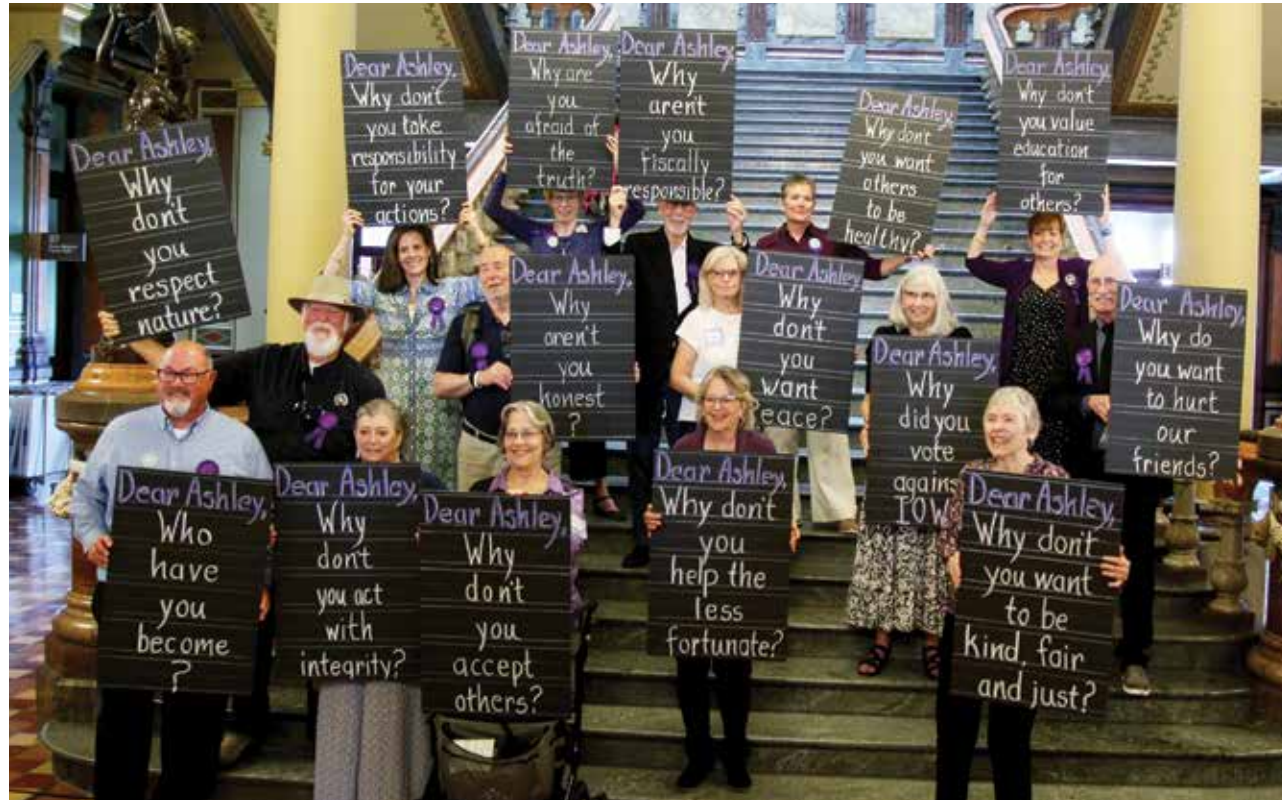 Dear Ashley,
Why
don't
you
respect
nature?
Dear Ashley,
Why don't
you take
responsibility
for your
actions?
Dear Ashley,
Why are
you
afraid of
the
truth?
Dear Ashley,
Why
arent
you
fiscally
responsible?
Dear Ashley,
Why don't
you want
others
to be
healthy?
Dear Ashley,
Why don't
you value
education
for
others?
Dear Ashley,
Why
aren't
you
honest
?
Dear Ashley,
Why
don't
you
want
peace?
Dear Ashley,
Why
did you
vote
agains
IOW
Dear Ashley,
Why do
you want
to hurt
our
friends?
Dear Ashley,
Who
have
you
become
?
Dear Ashley,
Why
don't
you act
with
integrity?
Dear Ashley,
Why
don't
you
accept
others?
Dear Ashley,
Why don't
you
help the
less
fortunate?
Dear Ashley,
Why don't
you want
to be
kind, fair
and just?